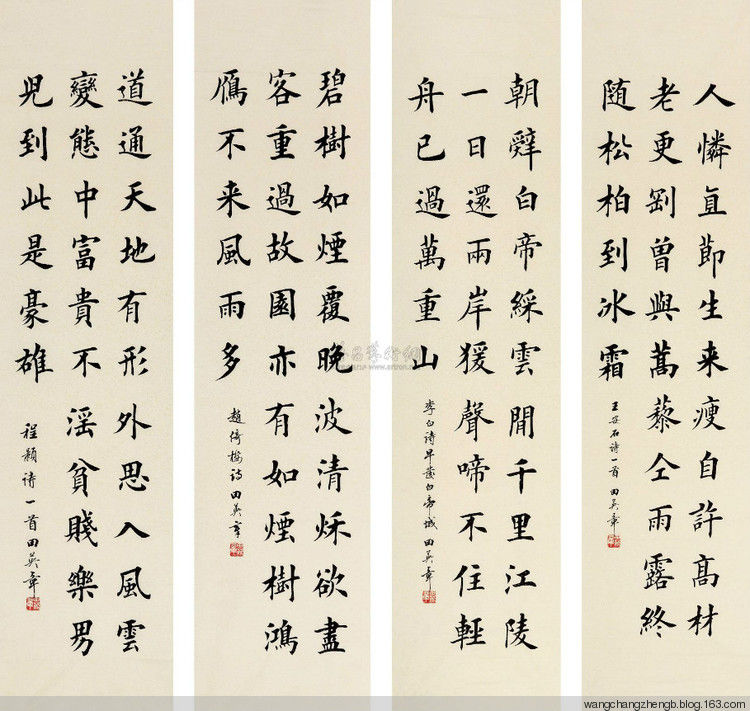 人憐直節生来瘦自許髙材
老更剛曾與蒿藜仝雨露終
随松柏到冰霜
王安石诗一首 田英章
朝辤白帝綵雲間千里江陵
一日還兩岸猨聲啼不住輕
舟已過萬重山
李白诗早發白帝城 田英章
碧樹如煙覆晚波清秌欲盡
客重過故園亦有如煙樹鴻
鴈不来風雨多
趙倚楼诗 田英章
道通天地有形外思入風雲
變態中富貴不滛貧賤樂男
児到此是豪雄
程颢诗一首 田英章
wangchangzhengb.blog.163.com